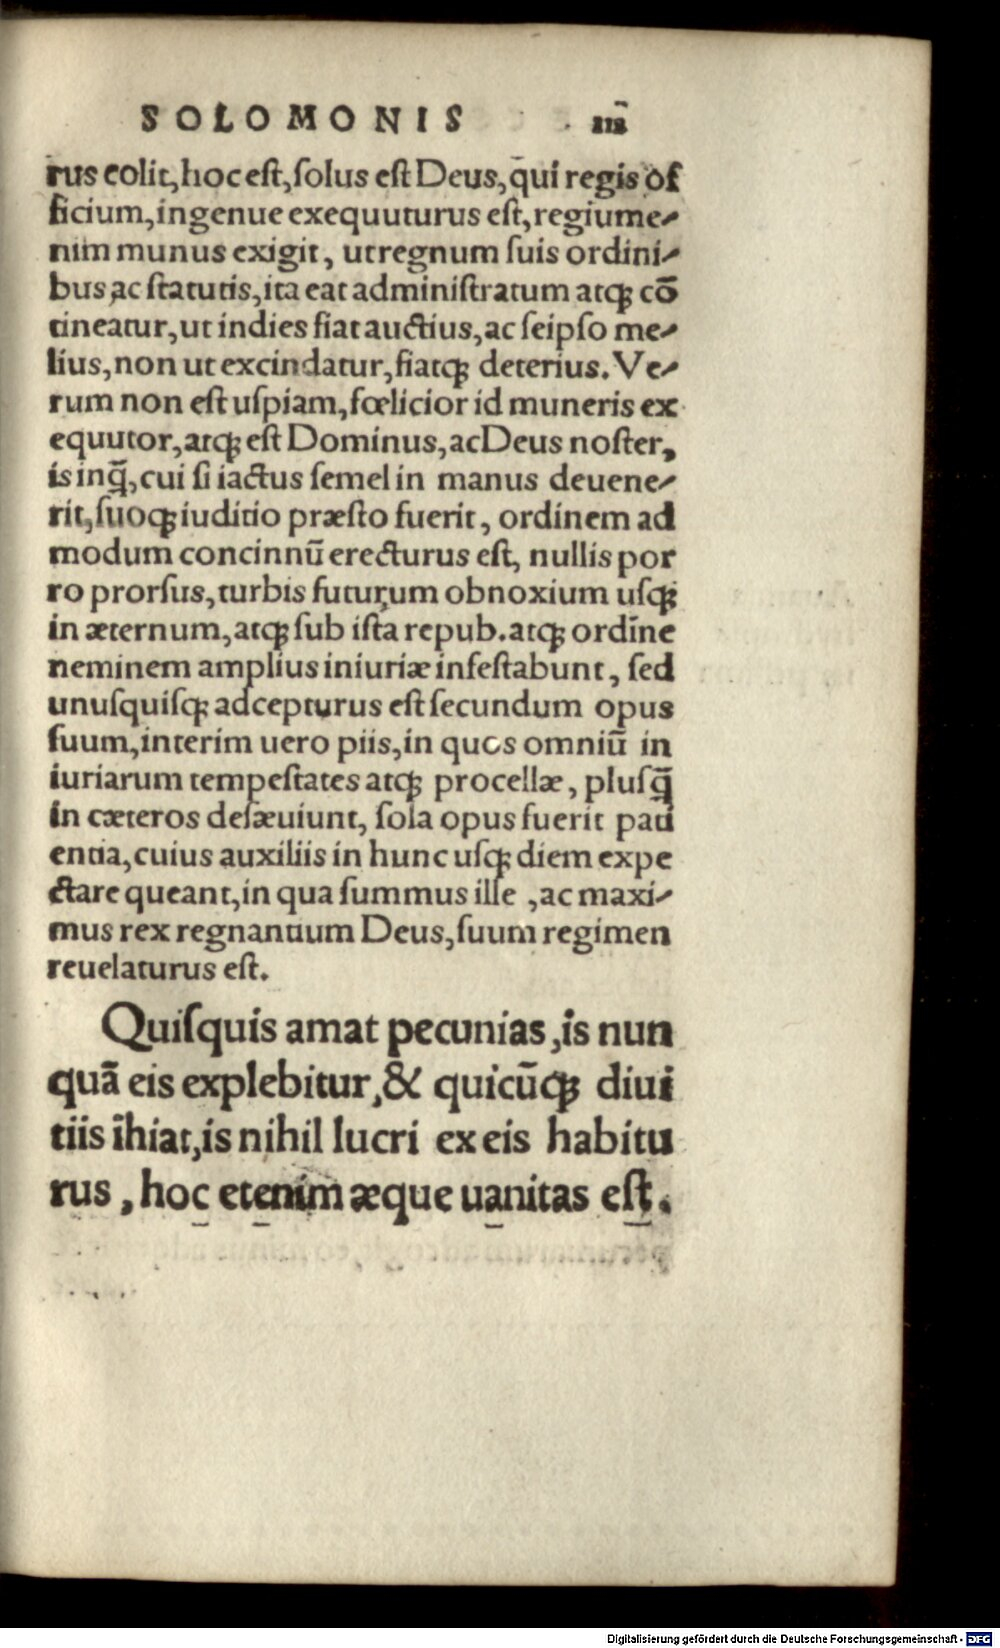 SOLOMONIS
rus colit, hoc est, solus est Deus, qui regis of
ficium, ingenue exequuturus est, regium e-
nim munus exigit, ut regnum suis ordini-
bus ac statutis, ita eat administratum atq; cõ
tineatur, ut indies fiat auctius, ac seipso me-
lius, non ut excindatur, fiatq; deterius. Ve-
rum non est uspiam, fœlicior id muneris ex
equutor, atq; est Dominus, ac Deus noster,
is inq̃, cui si iactus semel in manus deuene-
rit, suoq; iuditio præsto fuerit, ordinem ad
modum concinnũ erecturus est, nullis por
ro prorsus, turbis futurum obnoxium usq;
in æternum, atq; sub ista repub. atq; ordĩne
neminem amplius iniuriæ infestabunt, sed
unusquisq; adcepturus est secundum opus
suum, interim uero piis, in quos omniũ in
iuriarum tempestates atq; procellæ, plusq̃
in cæteros desæuiunt, sola opus fuerit pati
entia, cuius auxiliis in hunc usq; diem expe
ctare queant, in qua summus ille, ac maxi-
mus rex regnantium Deus, suum regimen
reuelaturus est.
Quisquis amat pecunias, is nun
quã eis explebitur, & quicũq; diui
tiis ĩhiat, is nihil lucri ex eis habitu
rus, hoc etenim æque uanitas est.
Digitalisierung gefördert durch die Deutsche Forschungsgemeinschaft - DFG